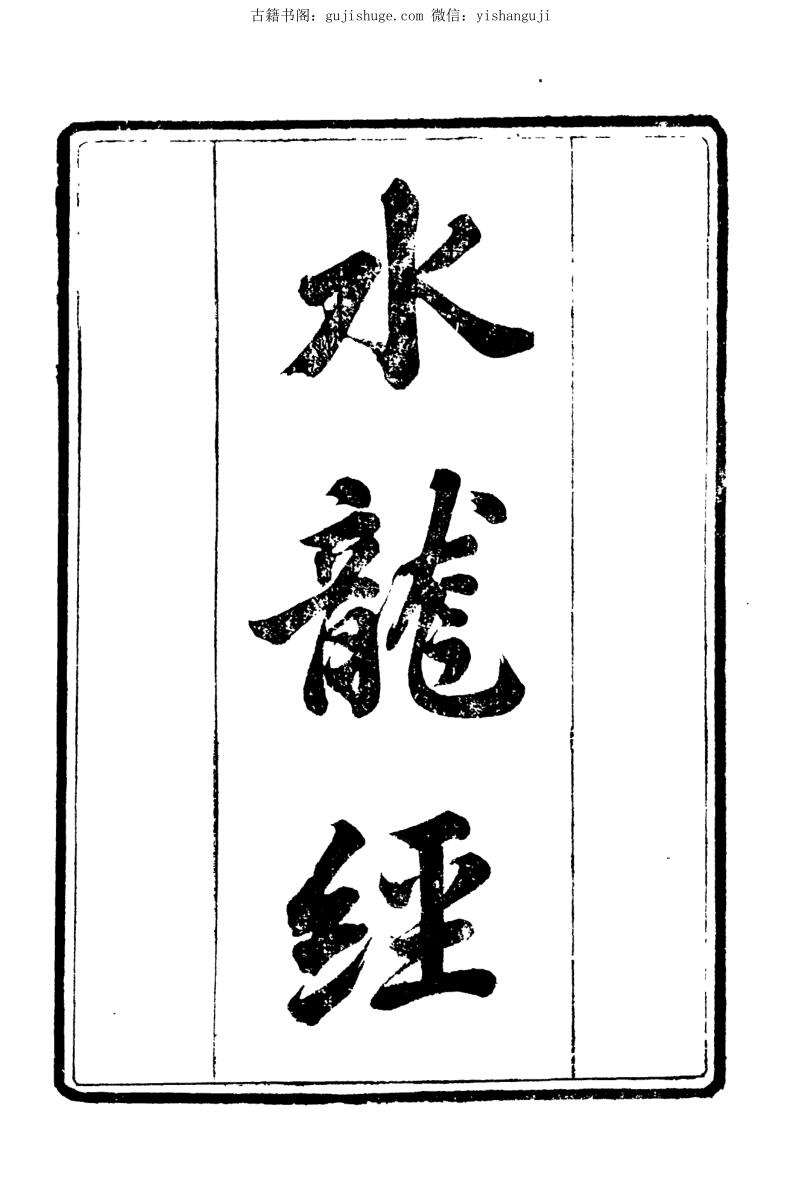 古籍书阁：gujishuge.com 微信：yishanguji
水龍經